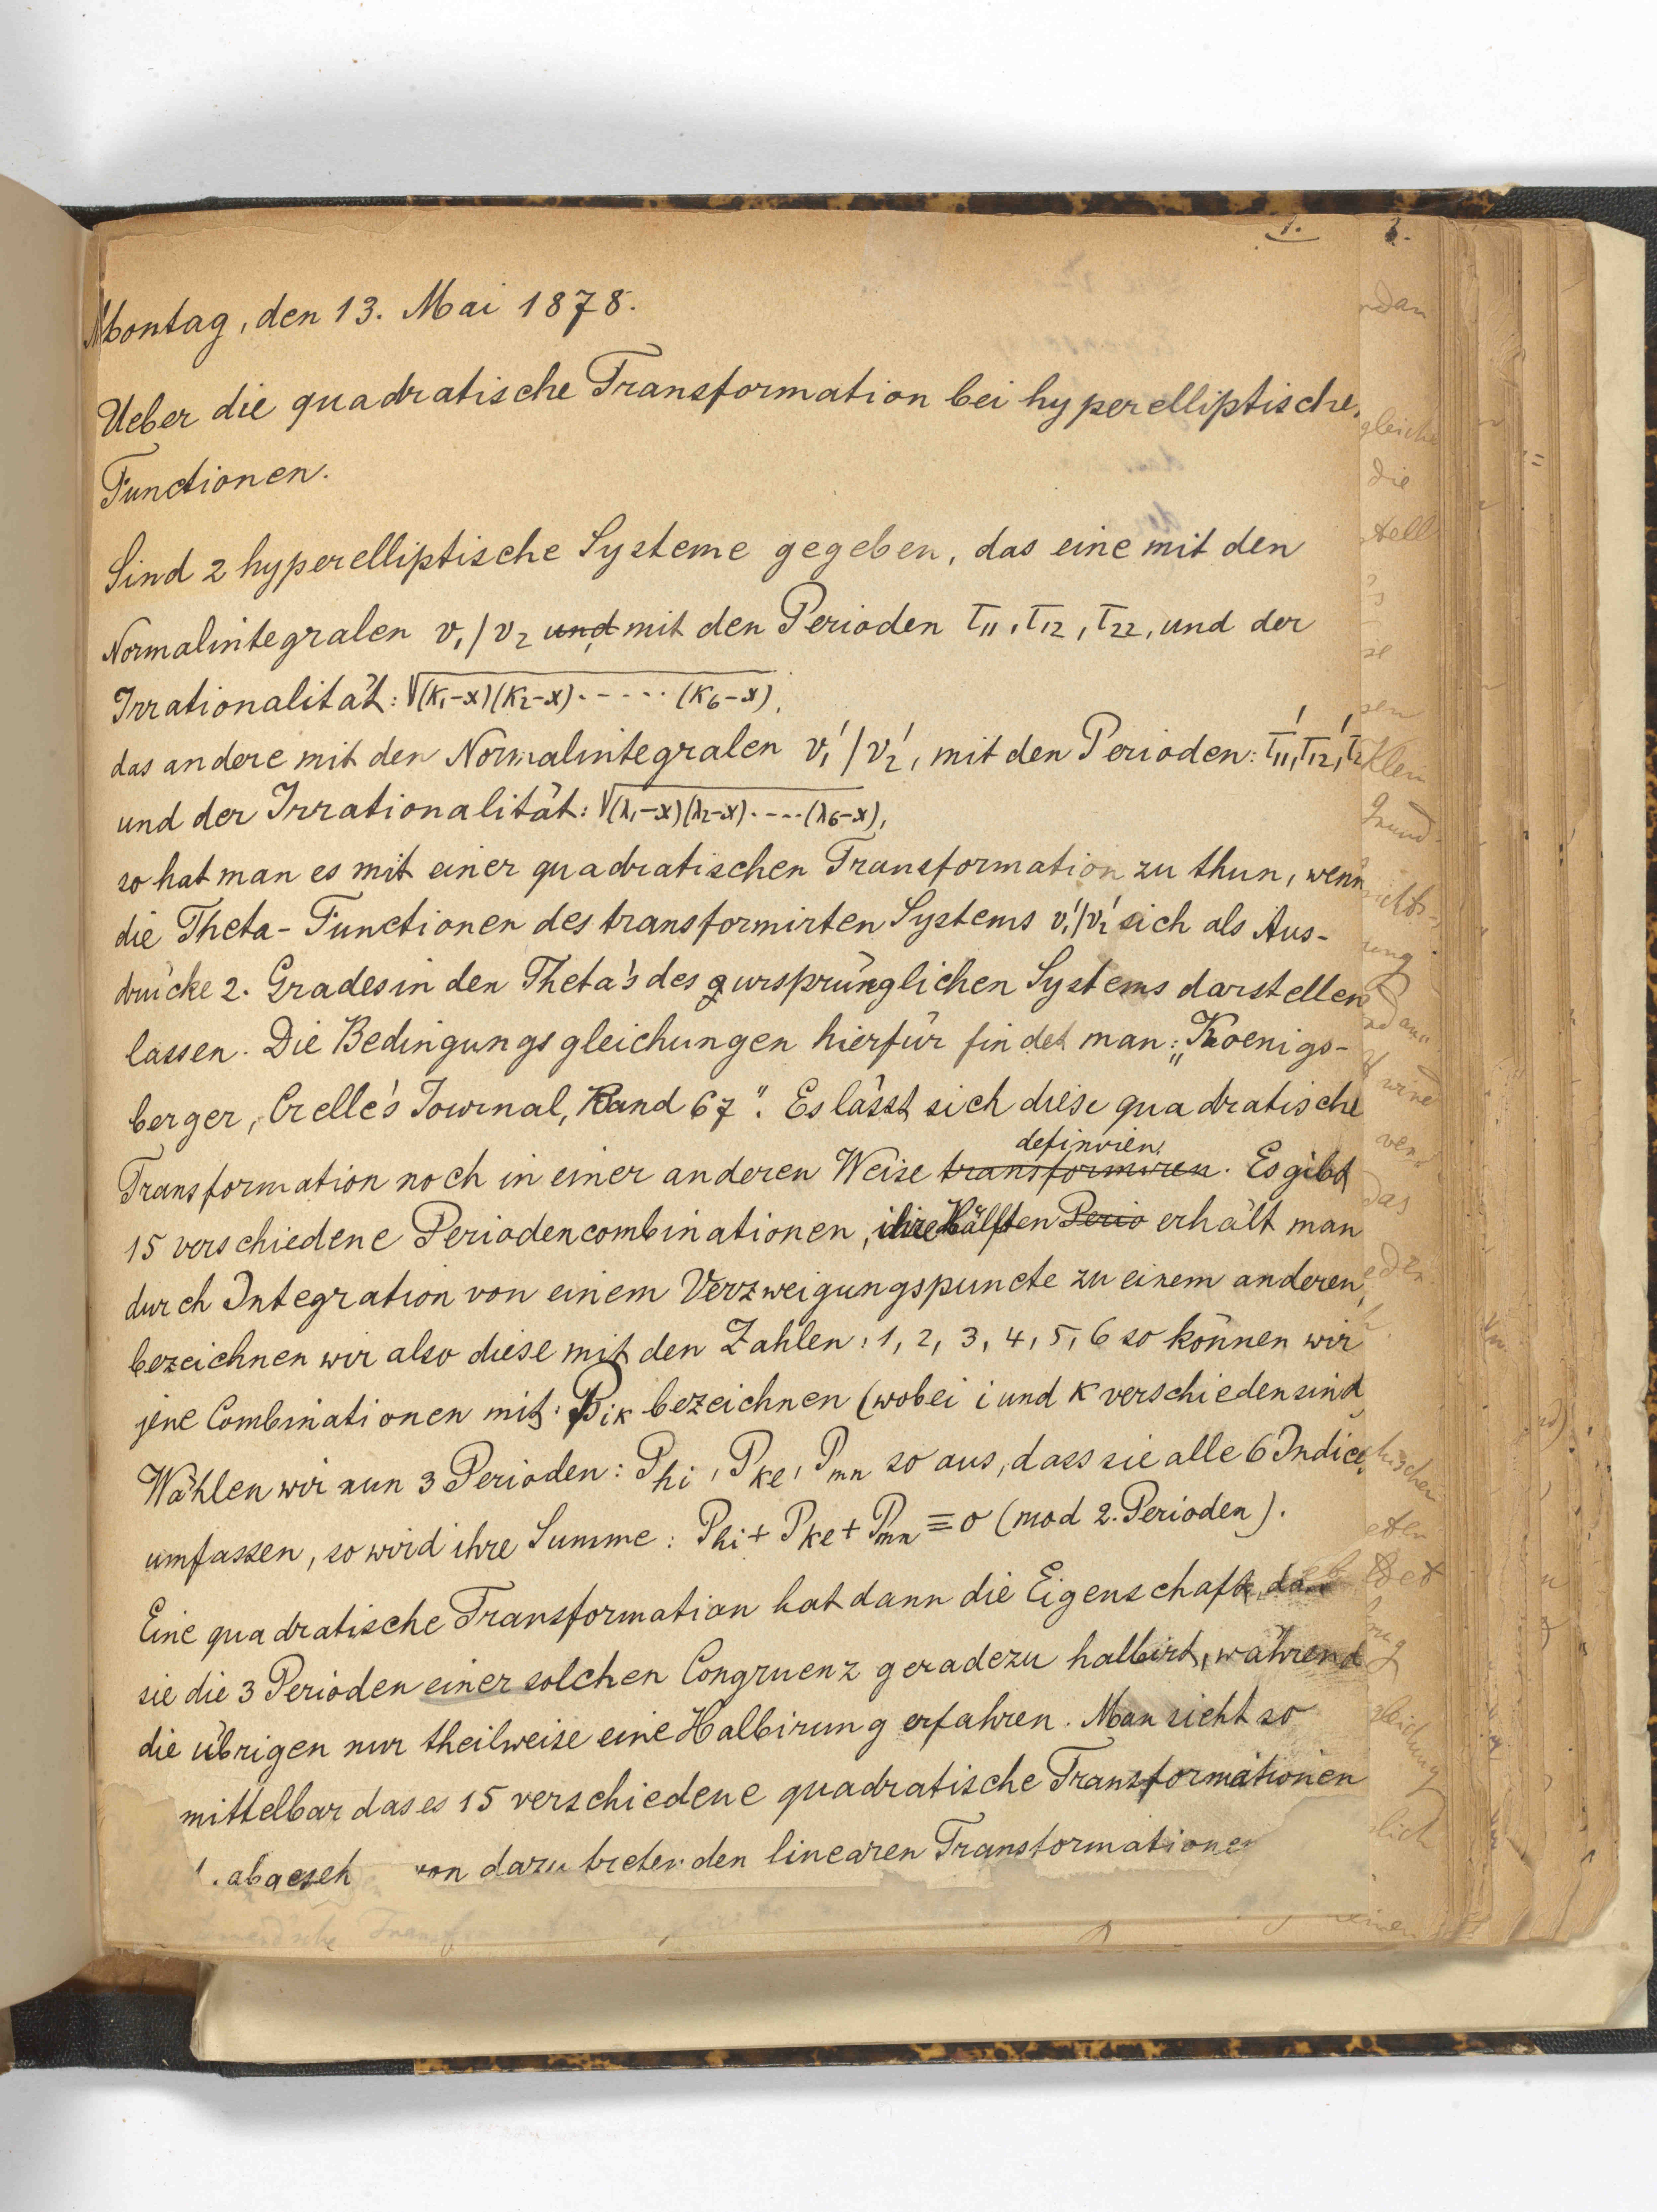 1.
Montag, den 13. Mai 1878.
Ueber die quadratische Transformation bei hyperelliptische
Functionen.
Sind 2 hyperelliptische Systeme gegeben, das eine mit den
Normalintegralen v₁/v₂ und mit den Perioden τ₁₁, τ₁₂, τ₂₂, und der
Irrationalität: √(κ₁-x)(κ₂-x)·----·(κ₆-x),
das andere mit den Normalintegralen v₁'/v₂', mit den Perioden: τ₁₁', τ₁₂', τ₂
und der Irrationalität: √(λ₁-x)(λ₂-x)·---·(λ₆-x),
so hat man es mit einer quadratischen Transformation zu thun, wenn
die Theta-Functionen des transformirten Systems v₁'/v₂' sich als Aus-
drücke 2. Grades in den Theta's des ursprünglichen Systems darstellen
lassen. Die Bedingungsgleichungen hierfür findet man: „Koenigs-
berger, Crelle's Journal, Band 67". Es lässt sich diese quadratische
definiren
Transformation noch in einer anderen Weise transformiren. Es gibt
15 verschiedene Periodencombinationen, ihre Hälften Perio erhält man
durch Integration von einem Verzweigungspuncte zu einem anderen,
bezeichnen wir also diese mit den Zahlen: 1, 2, 3, 4, 5, 6 so können wir
jene Combinationen mit: Pᵢₖ bezeichnen (wobei i und κ verschieden sind
Wählen wir nun 3 Perioden: P_hi, P_ke, P_mn so aus, dass sie alle 6 Indices
umfassen, so wird ihre Summe: P_hi + P_ke + P_mn ≡ 0 (mod 2. Perioden).
Eine quadratische Transformation hat dann die Eigenschaft, das
sie die 3 Perioden einer solchen Congruenz geradezu halbirt, während
die übrigen nur theilweise eine Halbirung erfahren. Man sieht so
mittelbar das es 15 verschiedene quadratische Transformationen
abgeseh von dazu tretenden linearen Transformationen
gleiche
die
Klein
Grund
das